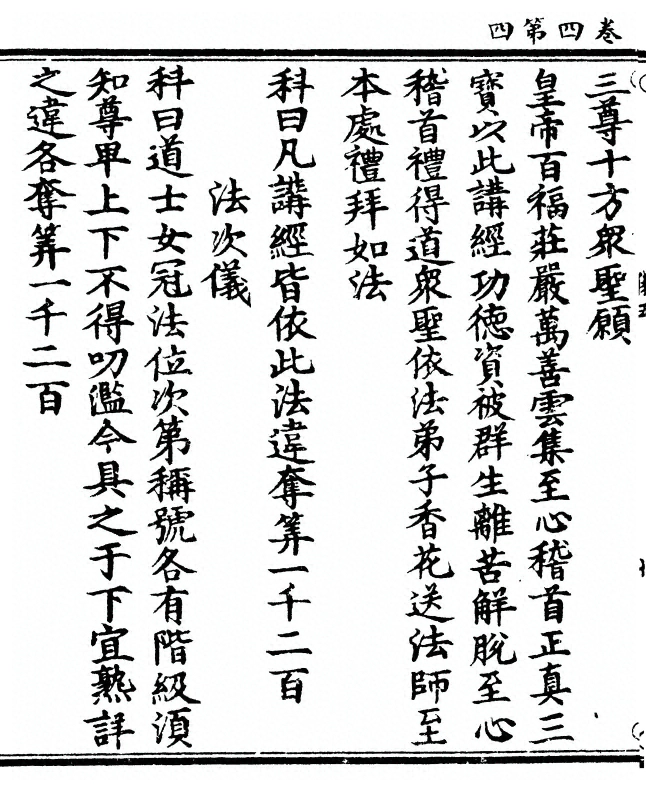 卷四第四
三尊十方衆聖願
皇帝百福莊嚴萬善雲集至心稽首正真三
寶以此講經功德資被群生離苦解脫至心
稽首禮得道衆聖依法弟子香花送法師至
本處禮拜如法
科曰凡講經皆依此法違奪筭一千二百
法次儀
科曰道士女冠法位次第稱號各有階級須
知尊甲上下不得叨濫今具之于下宜熟詳
之違各奪筭一千二百